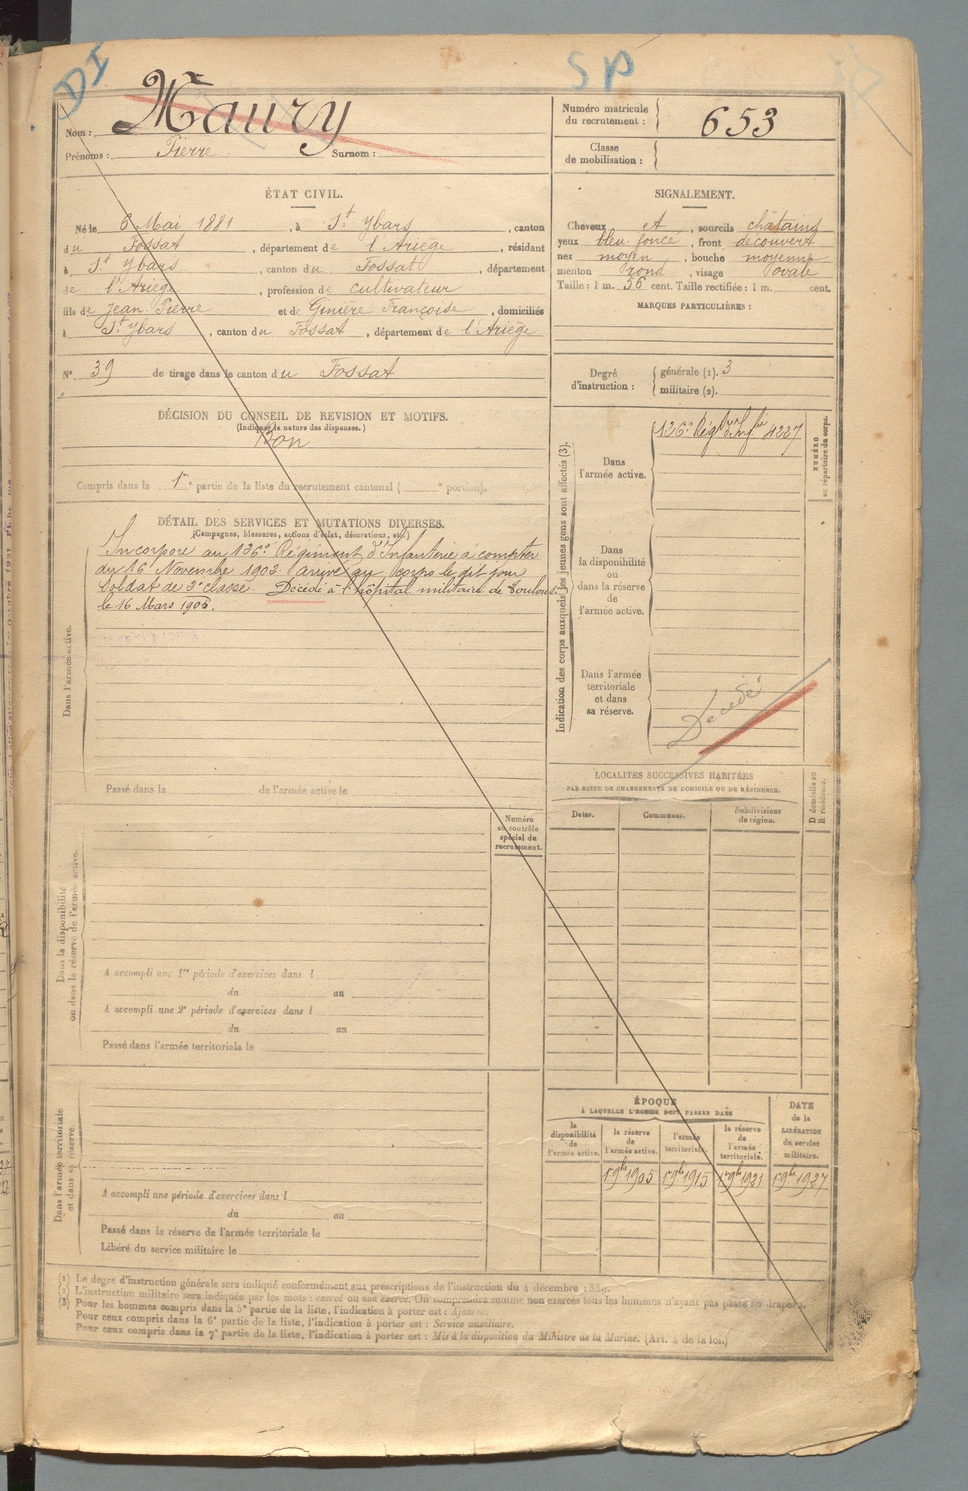 DI
SP
Nom : Maury
Prénoms : Pierre Surnom :
Numéro matricule du recrutement : 653
Classe de mobilisation :
ÉTAT CIVIL.
Né le 6 Mai 1881, à St Ybars, canton
du Fossat, département de l'Ariège, résidant
à St Ybars, canton du Fossat, département
de l'Ariège, profession de cultivateur
fils de Jean Pierre et de Ginière Françoise, domiciliés
à St Ybars, canton du Fossat, département de l'Ariège
N° 39 de tirage dans le canton du Fossat
SIGNALEMENT.
Cheveux et, sourcils châtains
yeux bleu foncé, front découvert
nez moyen, bouche moyenne
menton rond, visage ovale
Taille : 1 m. 56 cent. Taille rectifiée : 1 m. cent.
MARQUES PARTICULIÈRES :
Degré d'instruction : générale (1). 3
militaire (2).
DÉCISION DU CONSEIL DE REVISION ET MOTIFS.
(Indiquer la nature des dispenses.)
Bon
Compris dans la 1re partie de la liste du recrutement cantonal ( e portion).
DÉTAIL DES SERVICES ET MUTATIONS DIVERSES.
(Campagnes, blessures, actions d'éclat, décorations, etc.)
Dans l'armée active.
Incorporé au 126e Régiment d'Infanterie à compter
du 16 Novembre 1902 arrivé au corps le dit jour
Soldat de 2e classe. Décédé à l'hôpital militaire de Toulouse
le 16 Mars 1903.
Passé dans la de l'armée active le
Indication des corps auxquels les jeunes gens sont affectés (3).
Dans l'armée active.
126e Régt d'Infie 4227
NUMÉRO au répertoire du corps.
Dans la disponibilité ou dans la réserve de l'armée active.
Dans l'armée territoriale et dans sa réserve.
Décédé
LOCALITÉS SUCCESSIVES HABITÉES
PAR SUITE DE CHANGEMENTS DE DOMICILE OU DE RÉSIDENCE.
Dates. Communes. Subdivisions de région.
D domicile ou R résidence.
Numéro au contrôle spécial du recrutement.
Dans la disponibilité ou dans la réserve de l'armée active.
A accompli une 1re période d'exercices dans l
du au
A accompli une 2e période d'exercices dans l
du au
Passé dans l'armée territoriale le
Dans l'armée territoriale et dans sa réserve.
A accompli une période d'exercices dans l
du au
Passé dans la réserve de l'armée territoriale le
Libéré du service militaire le
ÉPOQUE
À LAQUELLE L'HOMME DOIT PASSER DANS
la disponibilité de l'armée active.
la réserve de l'armée active.
l'armée territoriale.
la réserve de l'armée territoriale.
DATE de la LIBÉRATION du service militaire.
1 9bre 1905 1 9bre 1915 1 9bre 1921 1 9bre 1927
(1) Le degré d'instruction générale sera indiqué conformément aux prescriptions de l'instruction du 4 décembre
(2) L'instruction militaire sera indiquée par les mots : exercé ou non exercé. On comprendra comme non exercés tous les hommes n'ayant pas passé au drapeau.
(3) Pour les hommes compris dans la 5e partie de la liste, l'indication à porter est : Ajourné.
Pour ceux compris dans la 6e partie de la liste, l'indication à porter est : Service auxiliaire.
Pour ceux compris dans la 7e partie de la liste, l'indication à porter est : Mis à la disposition du Ministre de la Marine. (Art. 4 de la loi.)